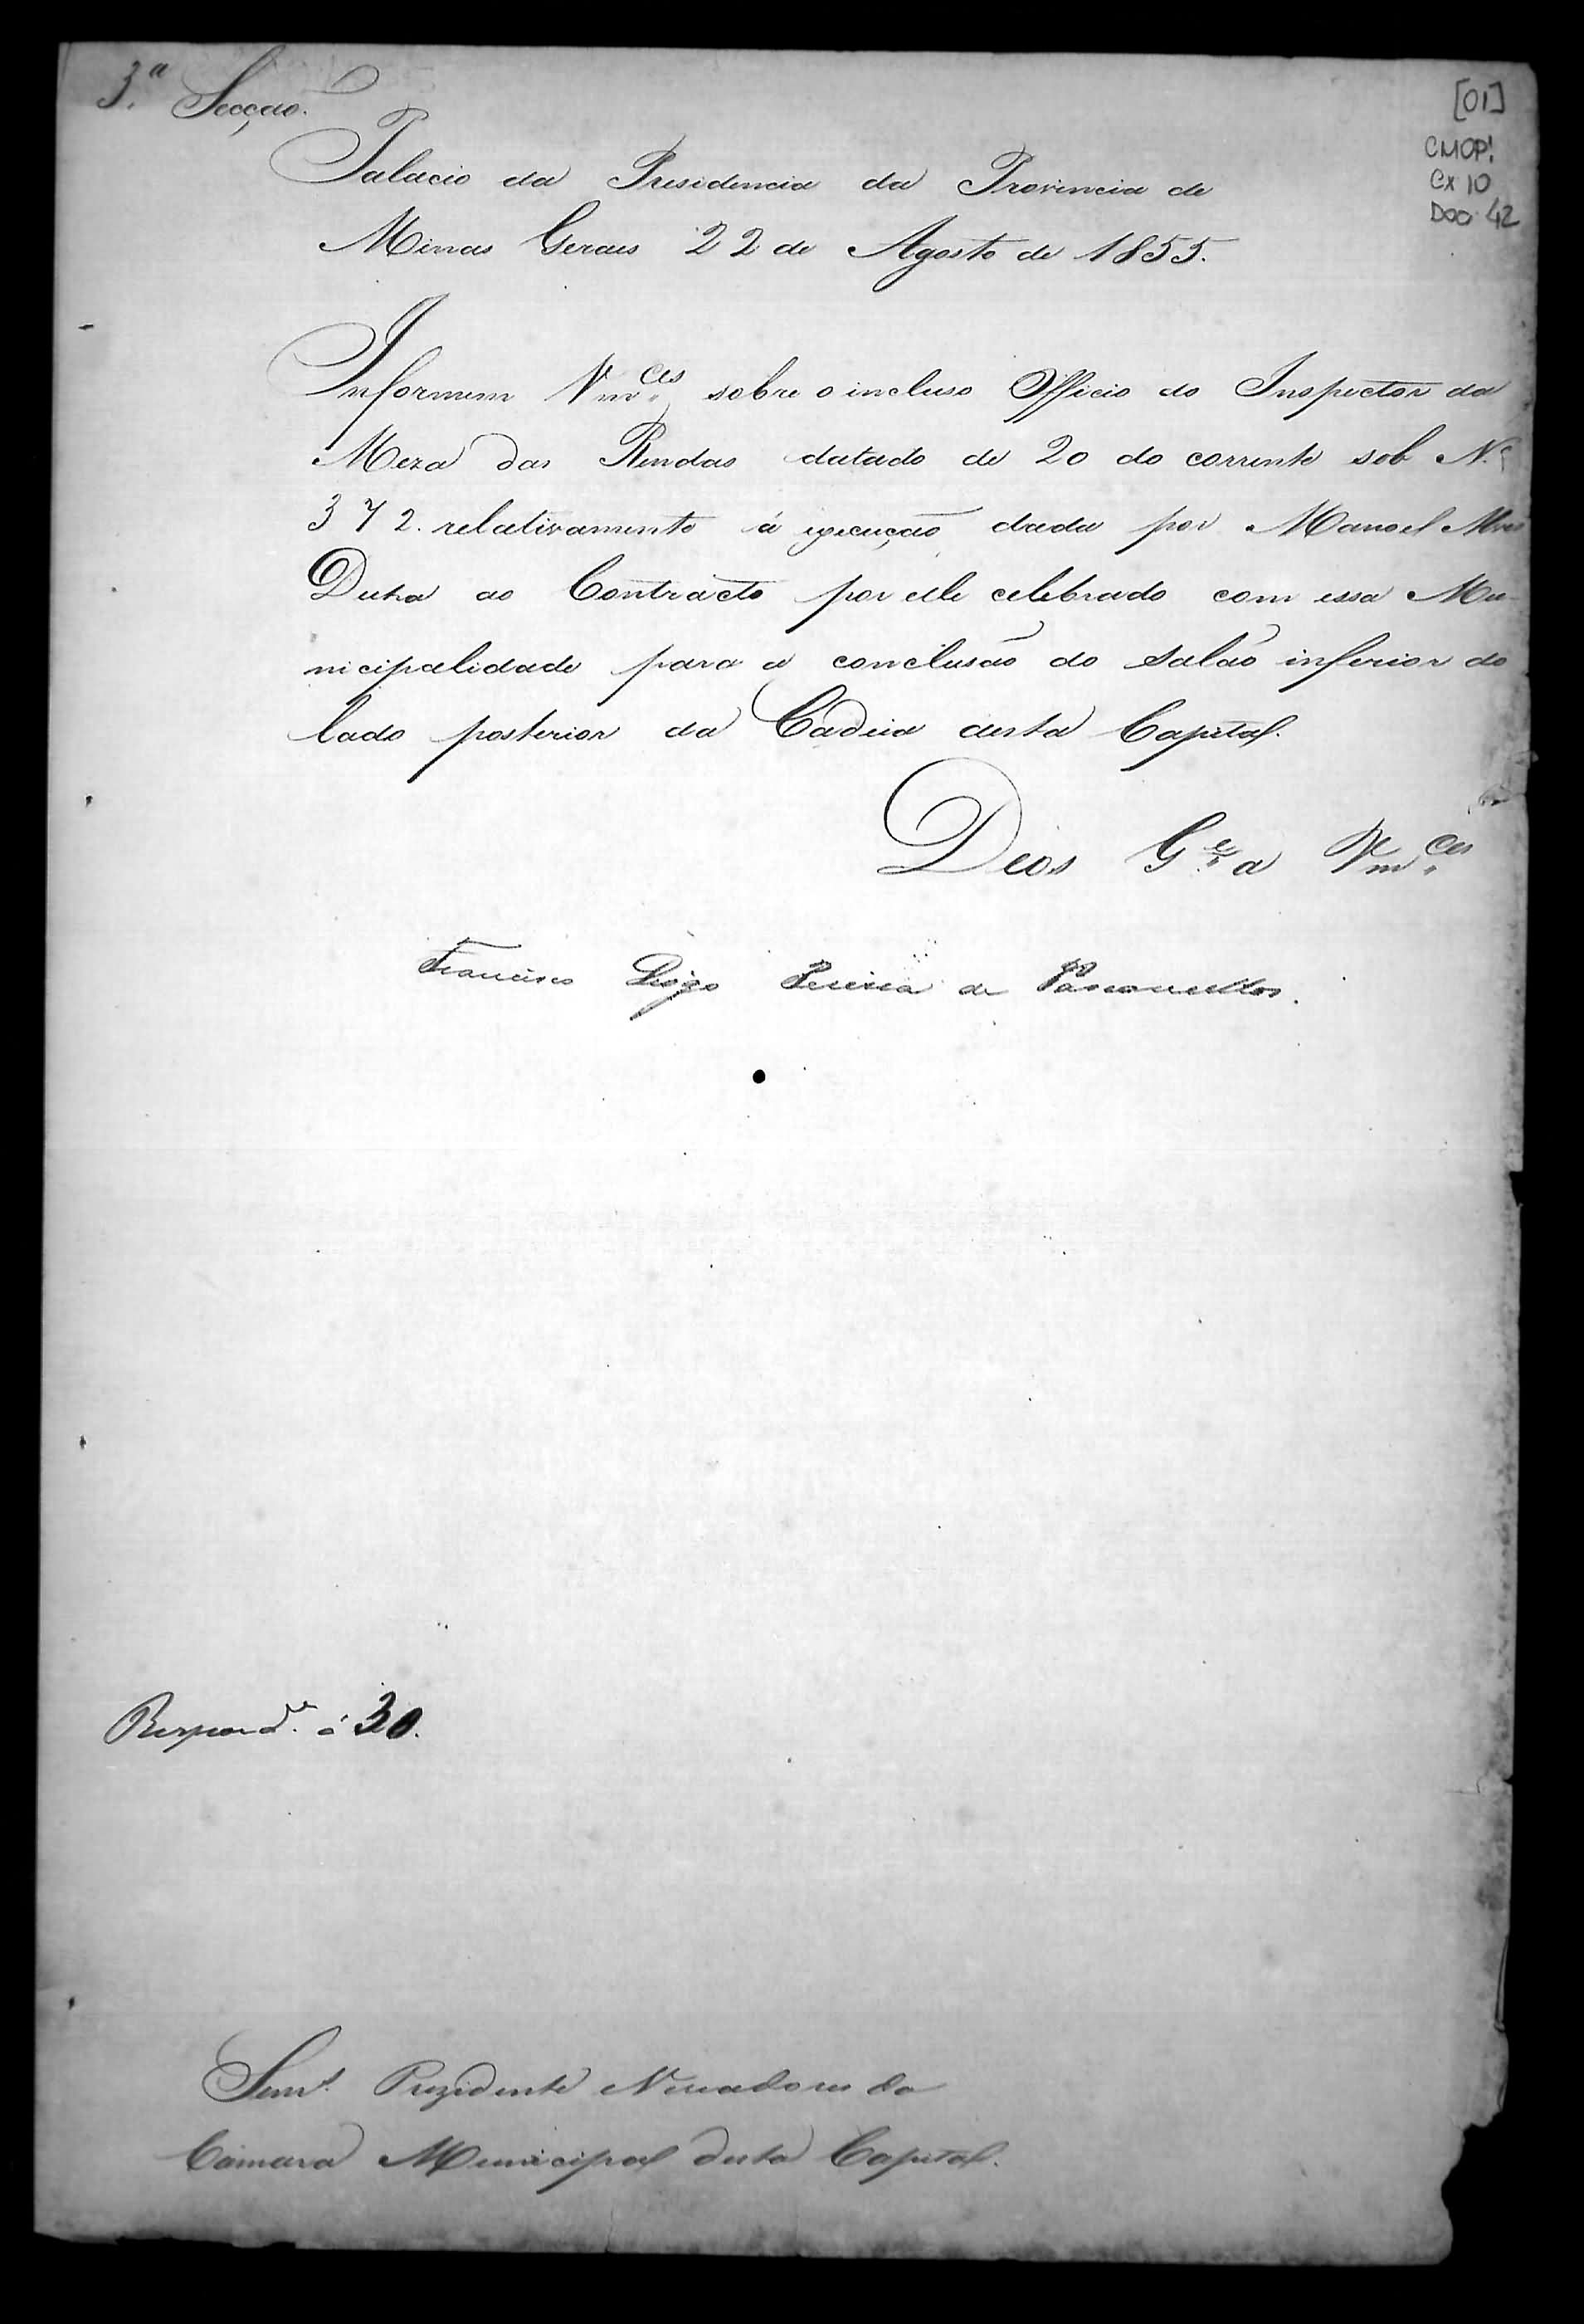 3.ª Secção.
[01]
CMOP.
Cx 10
Doc. 42
Palacio da Presidencia da Provincia de
Minas Geraes 22 de Agosto de 1855.
Informem Vm.ces sobre o incluso Officio do Inspector da
Meza das Rendas datado de 20 do corrente sob N.º
372. relativamente á execução dada por Manoel
Dutra ao Contracto por elle celebrado com essa Mu-
nicipalidade para a conclusão do salão inferior do
lado posterior da Cadeia desta Capital.
Deos G.e a Vm.ces
Francisco Diogo Pereira de Vasconcellos.
Respond.º á 30.
Senr.s Prezidente Vereadores da
Camara Municipal desta Capital.